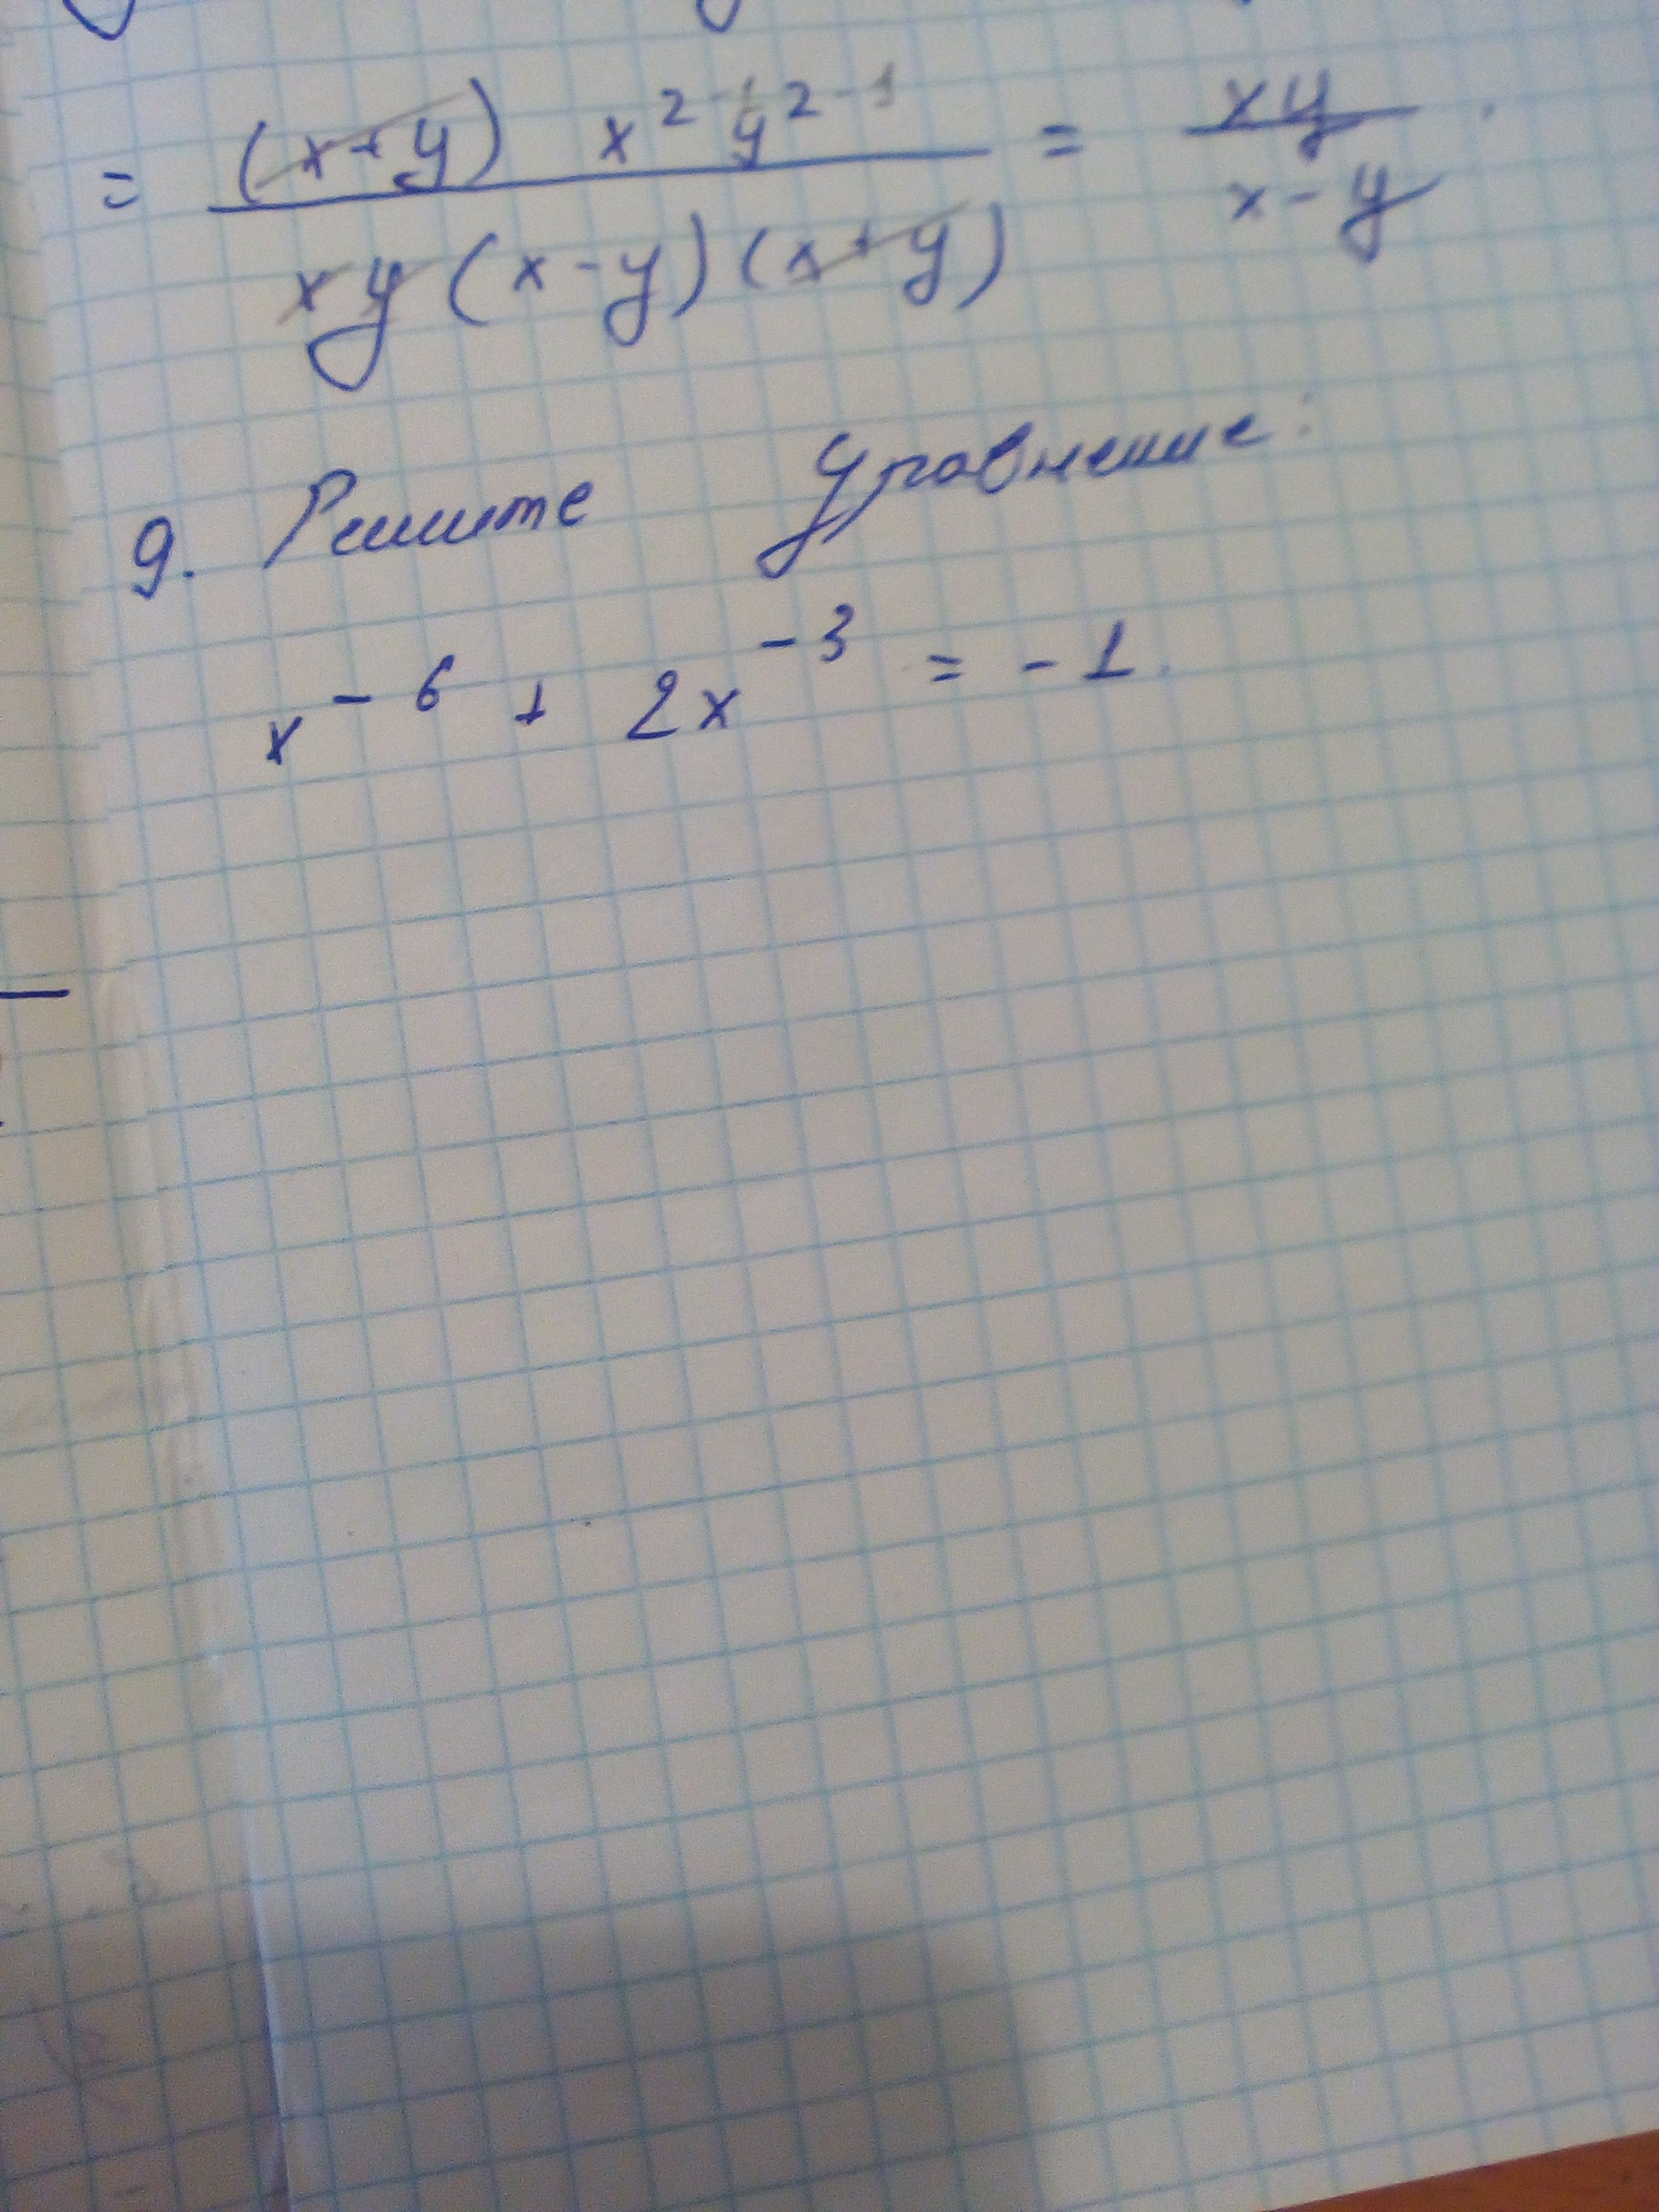 = (x+y) x²⁻¹ y²⁻¹ / xy (x-y) (x+y) = xy / x-y .
9. Решите Уравнение:
x⁻⁶ + 2x⁻³ = -1.